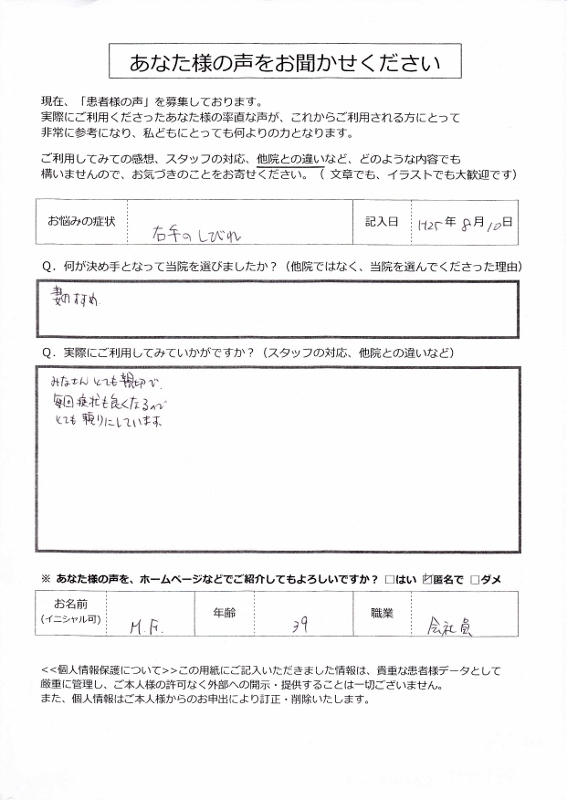 あなた様の声をお聞かせください
現在、「患者様の声」を募集しております。
実際にご利用くださったあなた様の率直な声が、これからご利用される方にとって
非常に参考になり、私どもにとっても何よりの力となります。
ご利用してみての感想、スタッフの対応、他院との違いなど、どのような内容でも
構いませんので、お気づきのことをお寄せください。（ 文章でも、イラストでも大歓迎です）
お悩みの症状 右手のしびれ 記入日 H25年 8月10日
Q．何が決め手となって当院を選びましたか？（他院ではなく、当院を選んでくださった理由）
妻のすすめ
Q．実際にご利用してみていかがですか？（スタッフの対応、他院との違いなど）
みなさんとても親切で、
毎回症状も良くなるので
とても頼りにしています。
※ あなた様の声を、ホームページなどでご紹介してもよろしいですか？ □はい ☑匿名で □ダメ
お名前 M.F. 年齢 39 職業 会社員
(イニシャル可)
<<個人情報保護について>>この用紙にご記入いただきました情報は、貴重な患者様データとして
厳重に管理し、ご本人様の許可なく外部への開示・提供することは一切ございません。
また、個人情報はご本人様からのお申出により訂正・削除いたします。